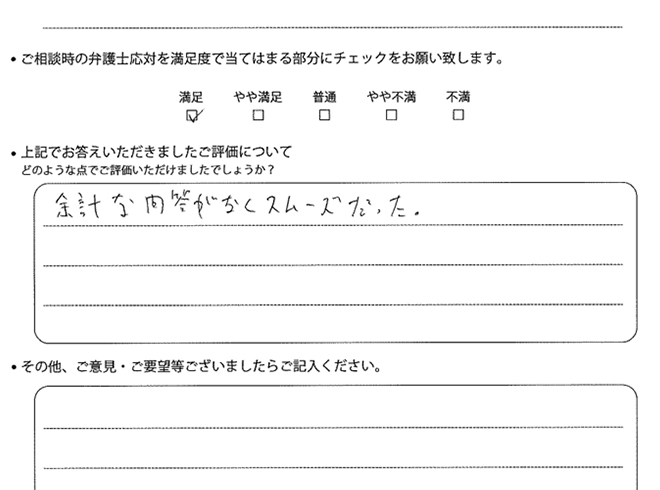 • ご相談時の弁護士応対を満足度で当てはまる部分にチェックをお願い致します。
満足 やや満足 普通 やや不満 不満
☑ ☐ ☐ ☐ ☐
• 上記でお答えいただきましたご評価について
どのような点でご評価いただけましたでしょうか？
余計な内答がなくスムーズだった。
• その他、ご意見・ご要望等ございましたらご記入ください。